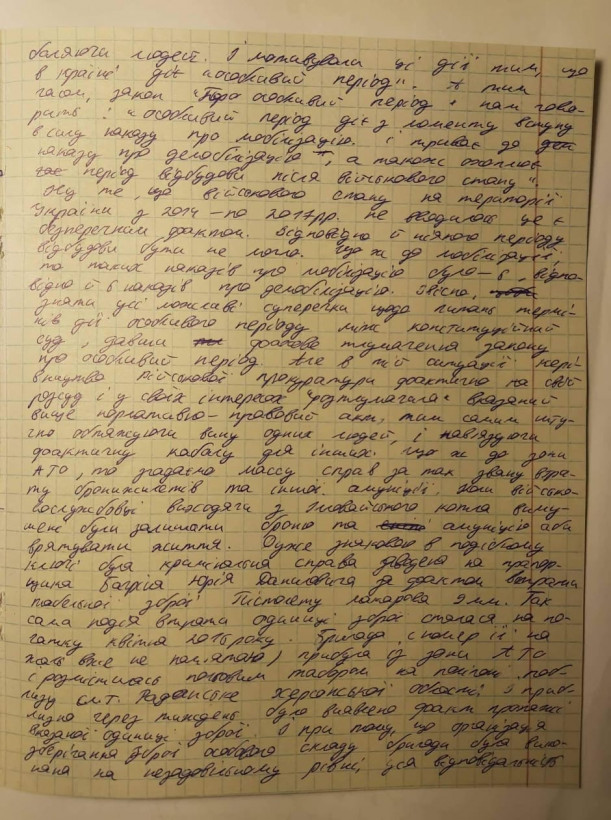 боляючи людей. І мотивували ці дії тим, що
в країні діє "особливий період". А тим
часом, закон "Про особливий період" нам гово-
рить: "особливий період діє з моменту вступу
в силу наказу про мобілізацію. і триває до
наказу про демобілізацію", а також охоплює
період відбудови після військового стану".
Ну те, що військового стану на території
України у 2014 – по 2017рр. не вводилось це є
безперечним фактом. Відповідно й ніякого періоду
відбудови бути не могло. Що ж до мобілізації,
то таких наказів про мобілізацію було – 6, відпо-
відно й 6 наказів про демобілізацію. Звісно,
зняти усі можливі суперечки щодо питань термі-
нів дії особливого періоду міг конституційний
суд, давши фахове тлумачення закону
про особливий період. Але в тій ситуації кері-
вництво військової прокуратури фактично на свій
розсуд і у своїх інтересах "розтлумачила" вказаний
вище нормативно-правовий акт, тим самим шту-
чно обтяжуючи вину одних людей, і нав'язуючи
фактичну кабалу для інших. Що ж до зони
АТО, то згадаємо массу справ за так звану втра-
ту бронижилетів та іншої амуніції, коли військо-
вослужбовці виходячи з Іловайського котла виму-
шені були залишати броню та амуніцію аби
врятувати життя. Дуже знаковою в подібному
ключі була кримінальна справа заведена на прапор-
щика Багрія Юрія Даниловича за фактом втрати
табельної зброї Пістолету макарова 9мм. Так
сама подія втрати одиниці зброї сталася на по-
чатку квітня 2016 року. Бригада (номер її на
жаль вже не пам'ятаю) прибула із зони АТО
і розмістилась польовим табором на полігоні поб-
лизу смт. Радянське Херсонської області і приб-
лизно через тиждень було виявлено факт пропажі
вказаної одиниці зброї. І при тому, що організація
зберігання зброї особового складу бригади була вико-
нана на незадовільному рівні, уся відповідальність